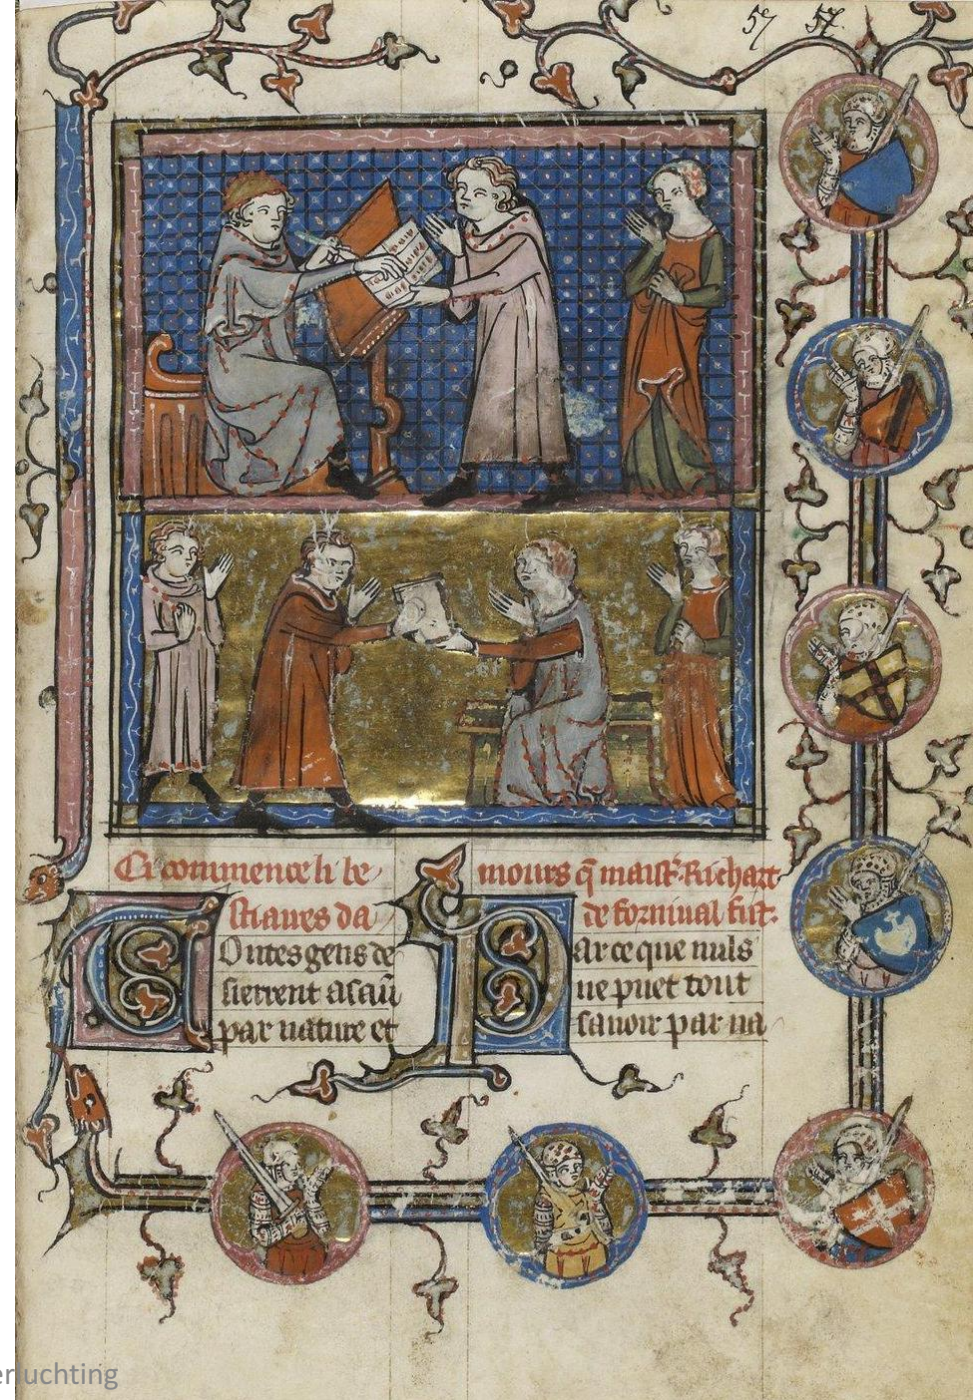 57 57.
Ci commence li be
stiaires da
mours q̃ maistr̃ Richart
de forniual fist.
Outes gens de
sierrent a sauũ
par nature et
ar ce que nuls
ne puet tout
sauoir par na
erluchting